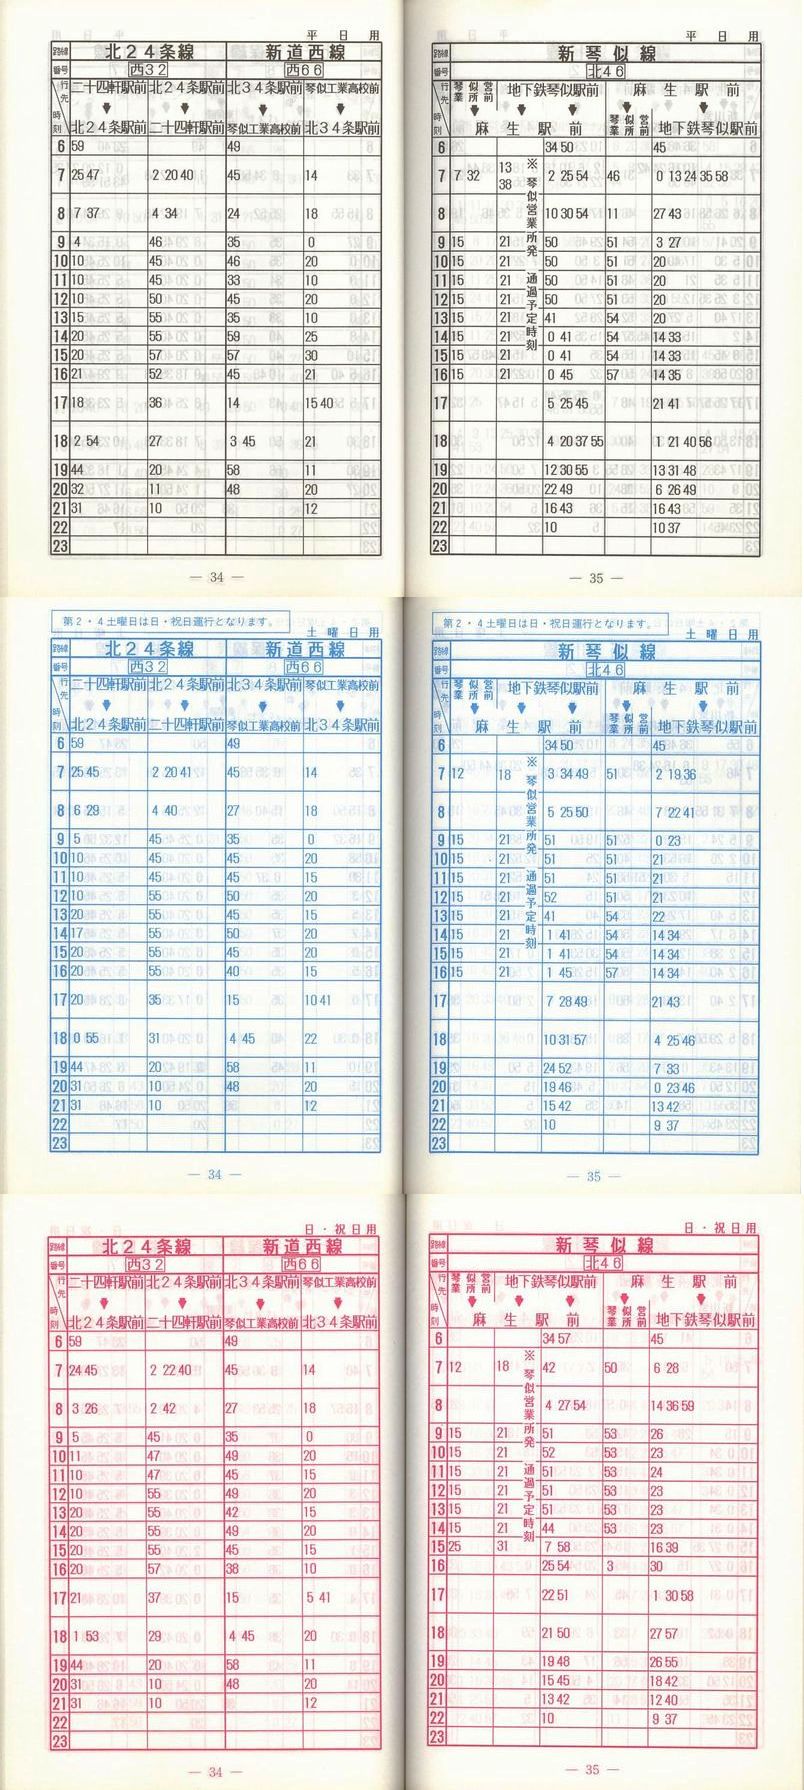 平日用
路線 北24条線 新道西線
番号 西32 西66
行先 二十四軒駅前 北24条駅前 北34条駅前 琴似工業高校前
時刻 北24条駅前 二十四軒駅前 琴似工業高校前 北34条駅前
6 59 49
7 25 47 2 20 40 45 14
8 7 37 4 34 24 18
9 4 46 35 0
10 10 45 46 20
11 10 45 33 10
12 10 50 45 20
13 15 55 35 10
14 20 55 59 25
15 20 57 57 30
16 21 52 45 21
17 18 36 14 15 40
18 2 54 27 3 45 21
19 44 20 58 11
20 32 11 48 20
21 31 10 12
22
23
— 34 —
平日用
路線 新琴似線
番号 北46
行先 琴似営業所前 地下鉄琴似駅前 麻生駅前
時刻 麻生駅前 琴似営業所前 地下鉄琴似駅前
※琴似営業所発 通過予定時刻
6 34 50 45
7 7 32 13 38 2 25 54 46 0 13 24 35 58
8 10 30 54 11 27 43
9 15 21 50 51 3 27
10 15 21 50 51 20
11 15 21 50 51 20
12 15 21 50 51 20
13 15 21 41 54 20
14 15 21 0 41 54 14 33
15 15 21 0 41 54 14 33
16 15 21 0 45 57 14 35
17 5 25 45 21 41
18 4 20 37 55 1 21 40 56
19 12 30 55 13 31 48
20 22 49 6 26 49
21 16 43 16 43
22 10 10 37
23
— 35 —
第2・4土曜日は日・祝日運行となります。
土曜日用
路線 北24条線 新道西線
番号 西32 西66
行先 二十四軒駅前 北24条駅前 北34条駅前 琴似工業高校前
時刻 北24条駅前 二十四軒駅前 琴似工業高校前 北34条駅前
6 59 49
7 25 45 2 20 41 45 14
8 6 29 4 40 27 18
9 5 45 35 0
10 10 45 45 20
11 10 45 45 15
12 10 55 50 20
13 20 55 45 15
14 17 55 50 20
15 20 55 45 20
16 20 55 40 15
17 20 35 15 10 41
18 0 55 31 4 45 22
19 44 20 58 11
20 31 10 48 20
21 31 10 12
22
23
— 34 —
第2・4土曜日は日・祝日運行となります。
土曜日用
路線 新琴似線
番号 北46
行先 琴似営業所前 地下鉄琴似駅前 麻生駅前
時刻 麻生駅前 琴似営業所前 地下鉄琴似駅前
※琴似営業所発 通過予定時刻
6 34 50 45
7 12 18 3 34 49 51 2 19 36
8 5 25 50 7 22 41
9 15 21 51 51 0 23
10 15 21 51 51 21
11 15 21 51 51 21
12 15 21 52 51 21
13 15 21 41 54 22
14 15 21 1 41 54 14 34
15 15 21 1 41 54 14 34
16 15 21 1 45 57 14 34
17 7 28 49 21 43
18 10 31 57 4 25 46
19 24 52 7 33
20 19 46 0 23 46
21 15 42 13 42
22 10 9 37
23
— 35 —
日・祝日用
路線 北24条線 新道西線
番号 西32 西66
行先 二十四軒駅前 北24条駅前 北34条駅前 琴似工業高校前
時刻 北24条駅前 二十四軒駅前 琴似工業高校前 北34条駅前
6 59 49
7 24 45 2 22 40 45 14
8 3 26 2 42 27 18
9 5 45 35 0
10 11 47 49 20
11 10 47 45 15
12 10 55 49 20
13 20 55 42 15
14 20 55 49 20
15 20 55 45 15
16 20 57 38 10
17 21 37 15 5 41
18 1 53 29 4 45 20
19 44 20 58 11
20 31 10 48 20
21 31 10 12
22
23
— 34 —
日・祝日用
路線 新琴似線
番号 北46
行先 琴似営業所前 地下鉄琴似駅前 麻生駅前
時刻 麻生駅前 琴似営業所前 地下鉄琴似駅前
※琴似営業所発 通過予定時刻
6 34 57 45
7 12 18 42 50 6 28
8 4 27 54 14 36 59
9 15 21 51 53 26
10 15 21 52 53 23
11 15 21 51 53 24
12 15 21 51 53 23
13 15 21 51 53 23
14 15 21 44 53 23
15 25 31 7 58 16 39
16 25 54 3 30
17 22 51 1 30 58
18 21 50 27 57
19 19 48 26 55
20 15 45 18 42
21 13 42 12 40
22 10 9 37
23
— 35 —